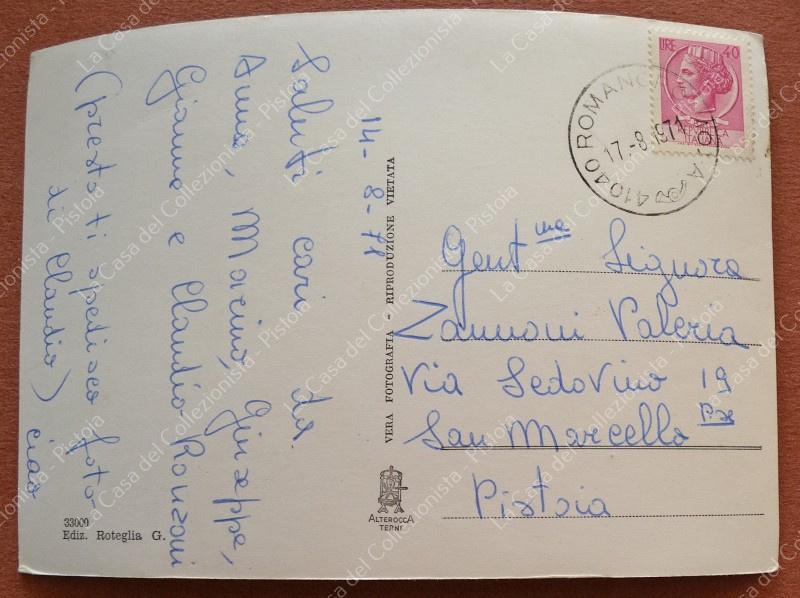 14-8-71
Saluti cari da
Anna, Marino, Giuseppe,
Gianne e Claudio Ronzoni
(presto ti spedisco foto
di Claudio) ciao
VERA FOTOGRAFIA - RIPRODUZIONE VIETATA
33000
Ediz. Roteglia G.
ALTEROCCA
TERNI
LIRE 40
41040 ROMANO
17-8 1971
Gent.ma Signora
Zannoni Valeria
Via Sedovino 19
San Marcello P.se
Pistoia
La Casa del Collezionista - Pistoia